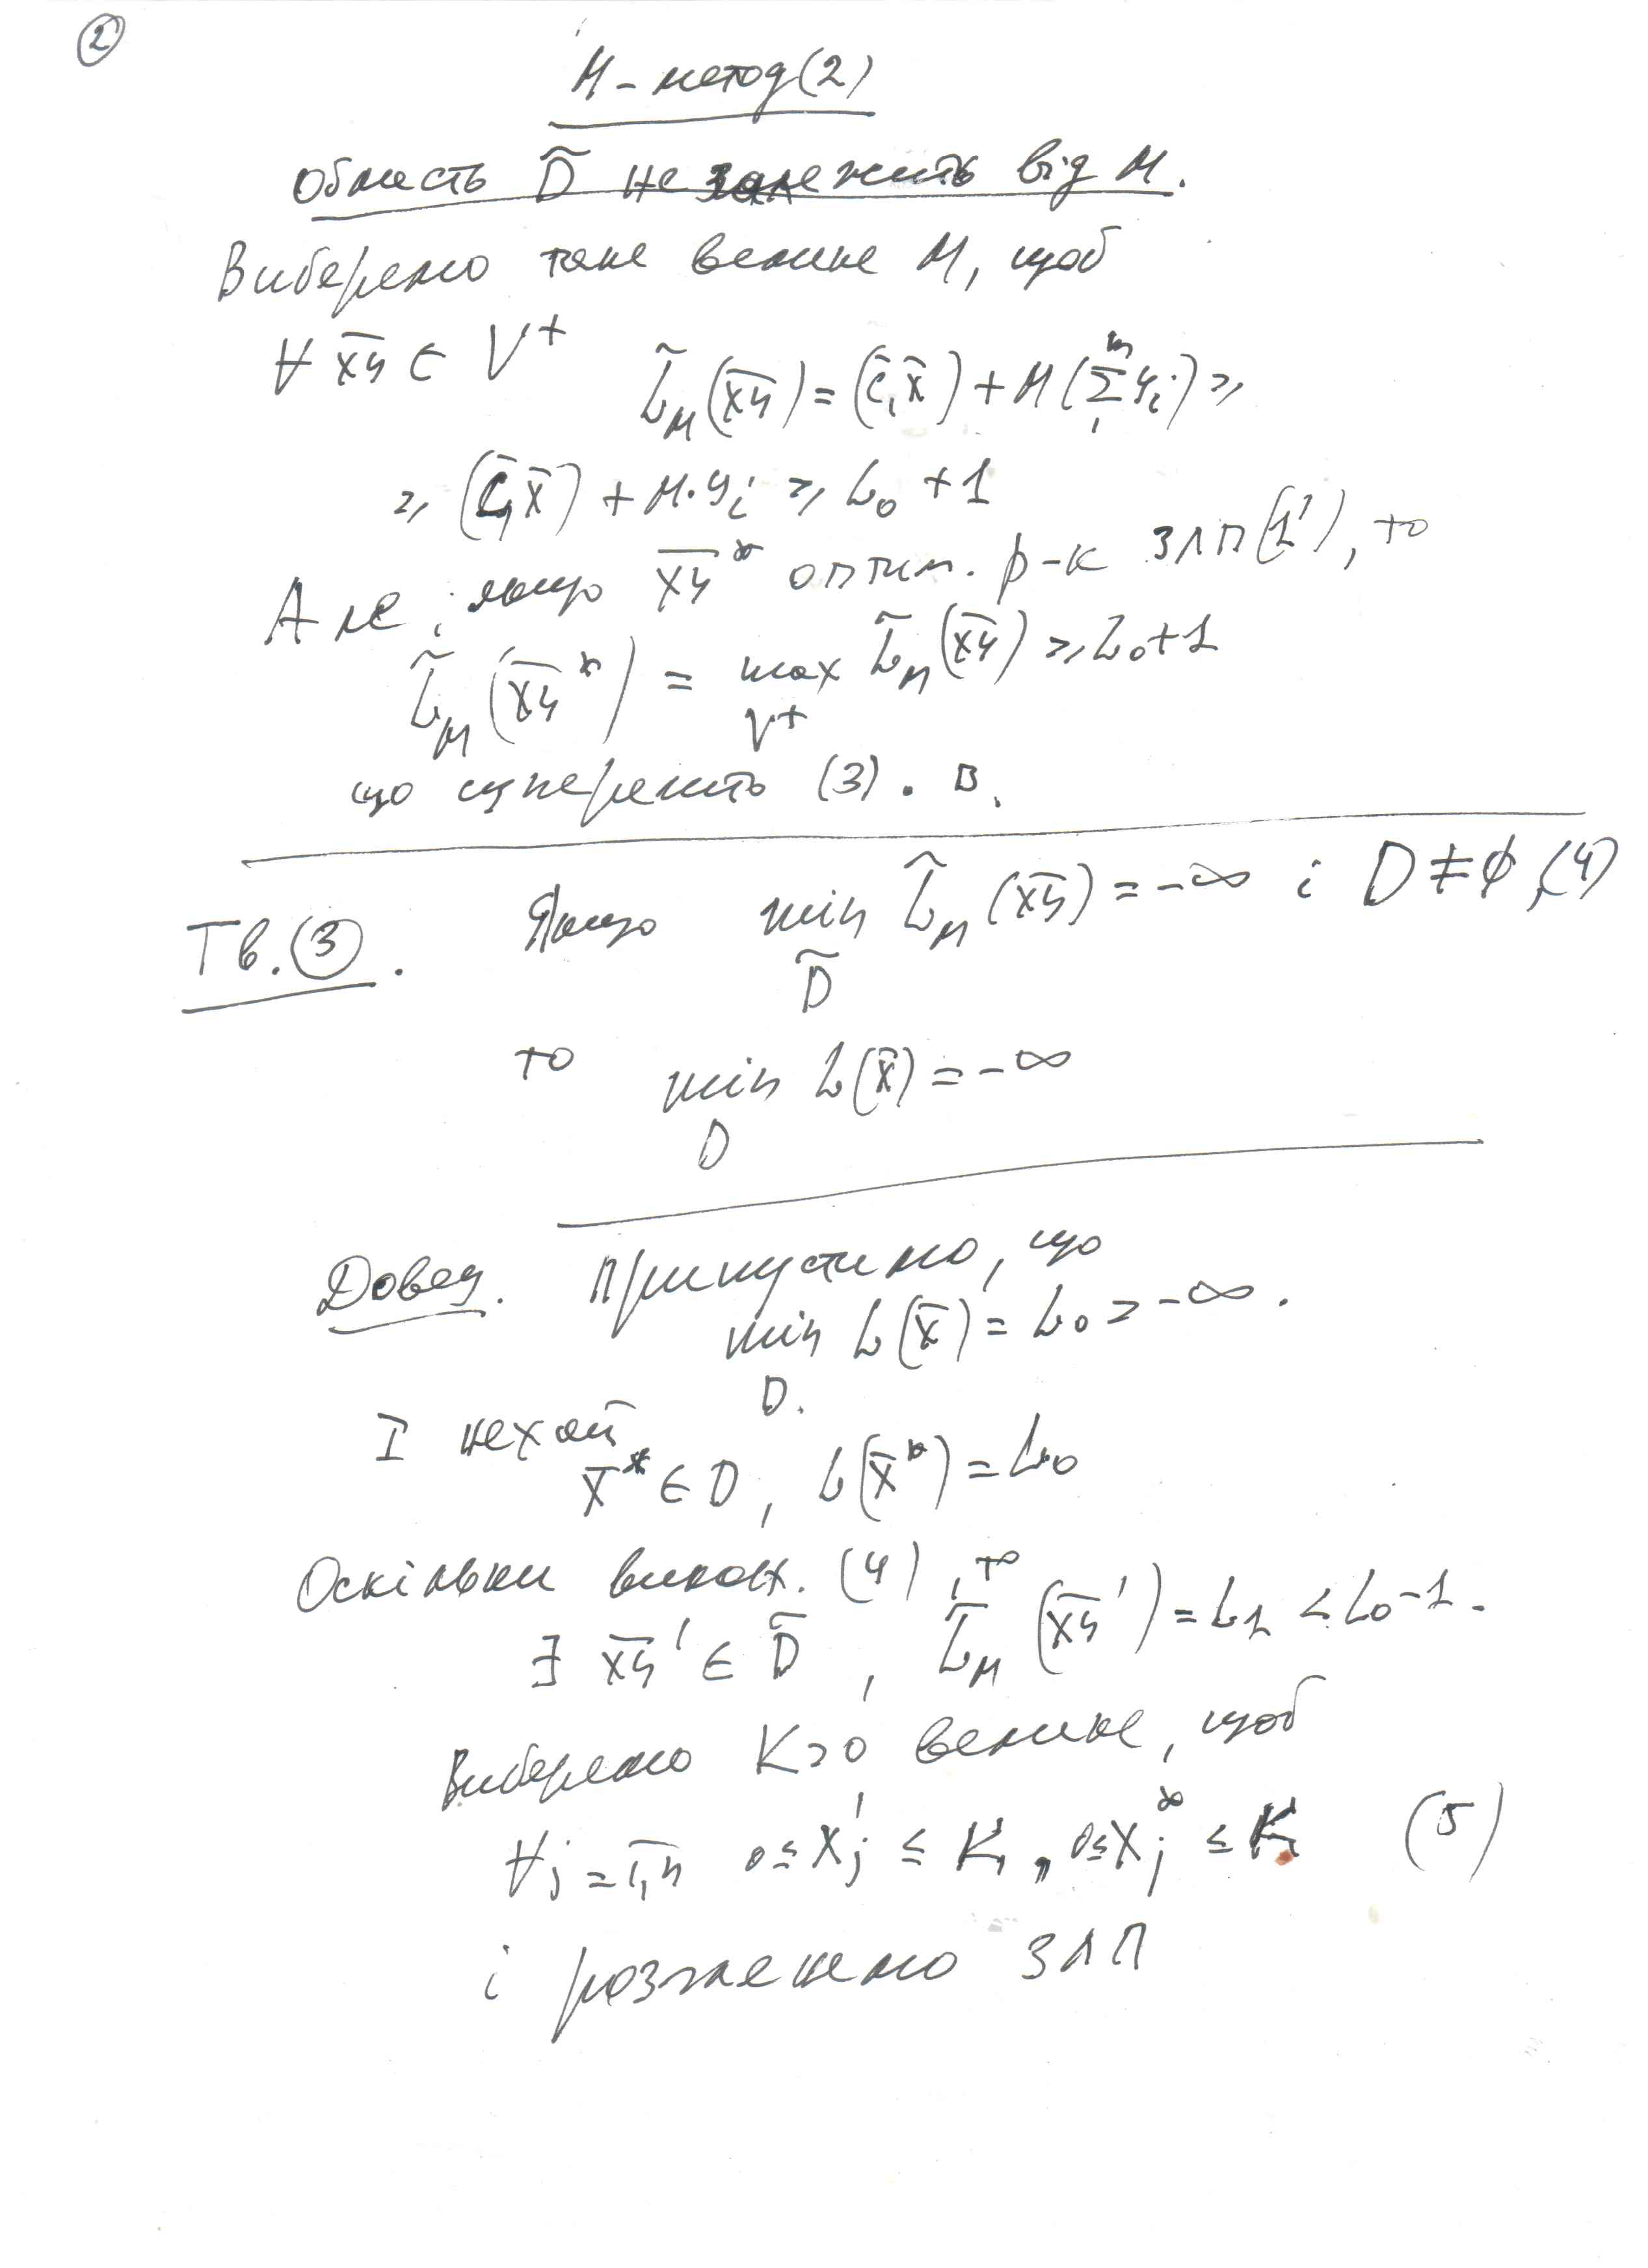 2
М-метод(2)
Область D̃ не залежить від М.
Виберемо таке велике М, щоб
∀ x̄ȳ ∈ V⁺ L̃_M(x̄ȳ) = (c̄, x̄) + M(∑₁ᵐ yᵢ) ≥
≥ (c̄, x̄) + M·yᵢ ≥ L₀ + 1
Але, якщо x̄ȳ* оптим. р-к ЗЛП(1'), то
L̃_M(x̄ȳ*) = max L̃_M(x̄ȳ) ≥ L₀+1
V⁺
що суперечить (3). В.
Тв.(3). Якщо min L̃_M(x̄ȳ) = -∞ і D ≠ ∅, (4)
D̃
то min L(x̄) = -∞
D
Довед. Припустимо, що
min L(x̄) = L₀ > -∞.
D.
І нехай
x̄* ∈ D, L(x̄*) = L₀
Оскільки викон. (4), то
∃ x̄ȳ' ∈ D̃, L̃_M(x̄ȳ') = L₁ < L₀-1.
Виберемо K>0 велике, щоб
∀j = 1,n 0≤xⱼ' ≤ K, 0≤xⱼ* ≤ K (5)
і розглянемо ЗЛП